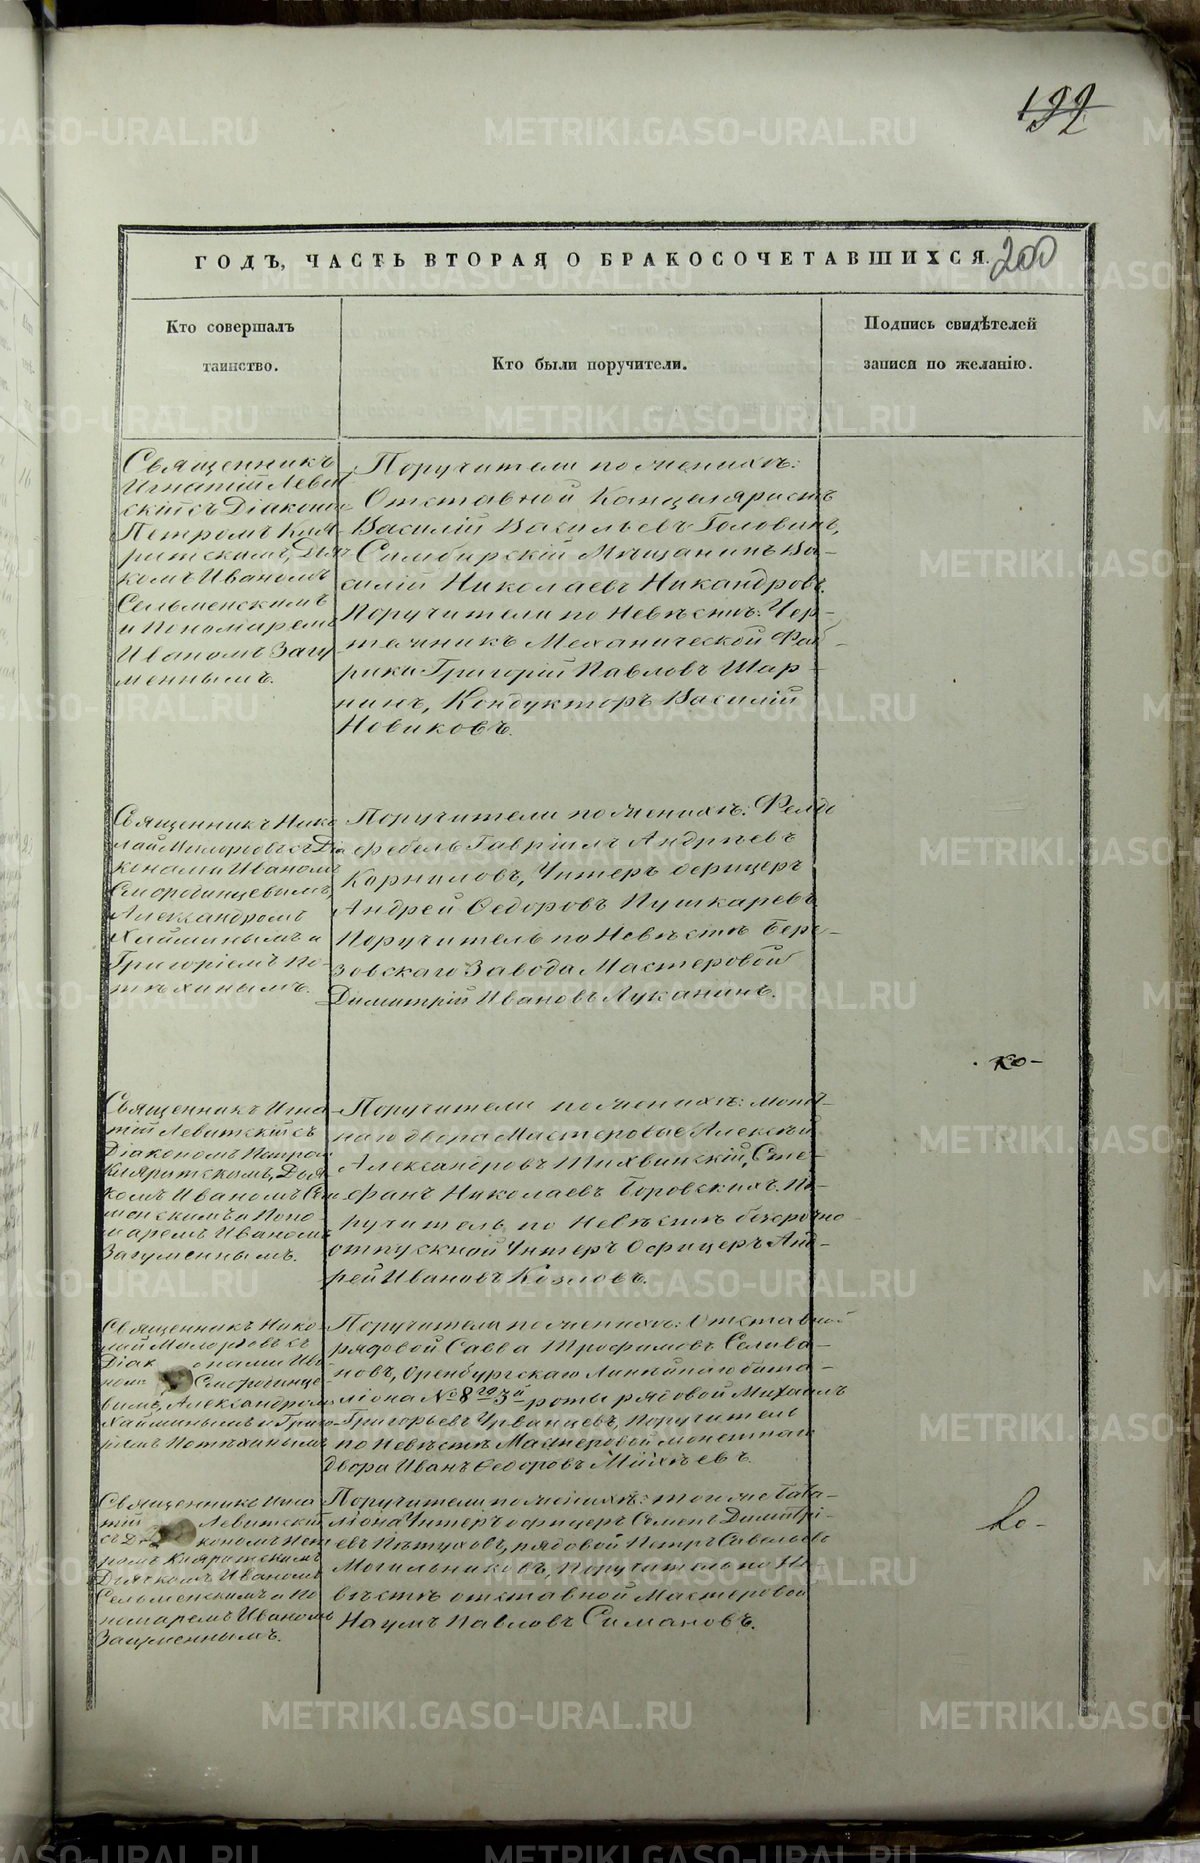 192
ГОДЪ, ЧАСТЬ ВТОРАЯ О БРАКОСОЧЕТАВШИХСЯ. 200
Кто совершалъ
таинство.
Кто были поручители.
Подпись свидѣтелей
записи по желанію.
Священникъ
Игнатій Левит
скій съ Діакономъ
Петромъ Кля-
ритскимъ, Дьяч
комъ Иваномъ
Сельменскимъ
и Пономаремъ
Иваномъ Загу-
меннымъ.
Поручители по женихѣ:
Отставной Канцеляристъ
Василій Васильевъ Головинъ,
Симбирскій Мѣщанинъ Ва-
силій Николаевъ Никандровъ.
Поручители по Невѣстѣ: Чер-
тежникъ Механической Фаб-
рики Григорій Павловъ Шар-
нинъ, Кондукторъ Василій
Новиковъ.
Священникъ Нико
лай Милорковъ съ Дія
конами Иваномъ
Смородинцевымъ,
Александромъ
Хайминымъ и
Григоріемъ По-
тѣхинымъ.
Поручители по женихѣ: Фельд
фебель Гавріилъ Андрѣевъ
Корниловъ, Унтеръ офицеръ
Андрей Ѳедоровъ Пушкаревъ
Поручитель по Невѣстѣ Бере-
зовскаго Завода Мастеровой
Димитрій Ивановъ Луканинъ.
ко-
Священникъ Игна
тій Левитскій съ
Діакономъ Петромъ
Кляритскимъ, Дьяч
комъ Иваномъ Сель
менскимъ и Поно-
маремъ Иваномъ
Загуменнымъ.
Поручители по женихѣ: монет-
наго двора Мастеровые Алексѣй
Александровъ Тихвинскій, Сте-
фанъ Николаевъ Боровскихъ. По-
ручитель по Невѣстѣ безсрочно
отпускной Унтеръ Офицеръ Анд-
рей Ивановъ Козловъ.
Священникъ Нико-
лай Милорковъ съ
Діаконами Ива
номъ Смородинце-
вымъ, Александромъ
Хайминымъ и Григо-
ріемъ Потѣхинымъ
Поручители по женихѣ: Отставной
рядовой Савва Трофимовъ Селива-
новъ, Оренбургскаго Линѣйнаго бата-
ліона №8го 3й роты рядовой Михаилъ
Григорьевъ Урванцевъ, Поручитель
по Невѣстѣ Мастеровой монетнаго
Двора Иванъ Ѳедоровъ Михѣевъ.
Священникъ Игна
тій Левитскій
съ Діакономъ Пет
ромъ Кляритскимъ
Дьячкомъ Иваномъ
Сельменскимъ и По
номаремъ Иваномъ
Загуменнымъ.
Поручители по женихѣ: того же бата-
ліона Унтеръ офицеръ Семенъ Димитрі-
евъ Пѣтуховъ, рядовой Петръ Савельевъ
Могильниковъ, Поручитель по Не-
вѣстѣ отставной Мастеровой
Наумъ Павловъ Симановъ.
ко-